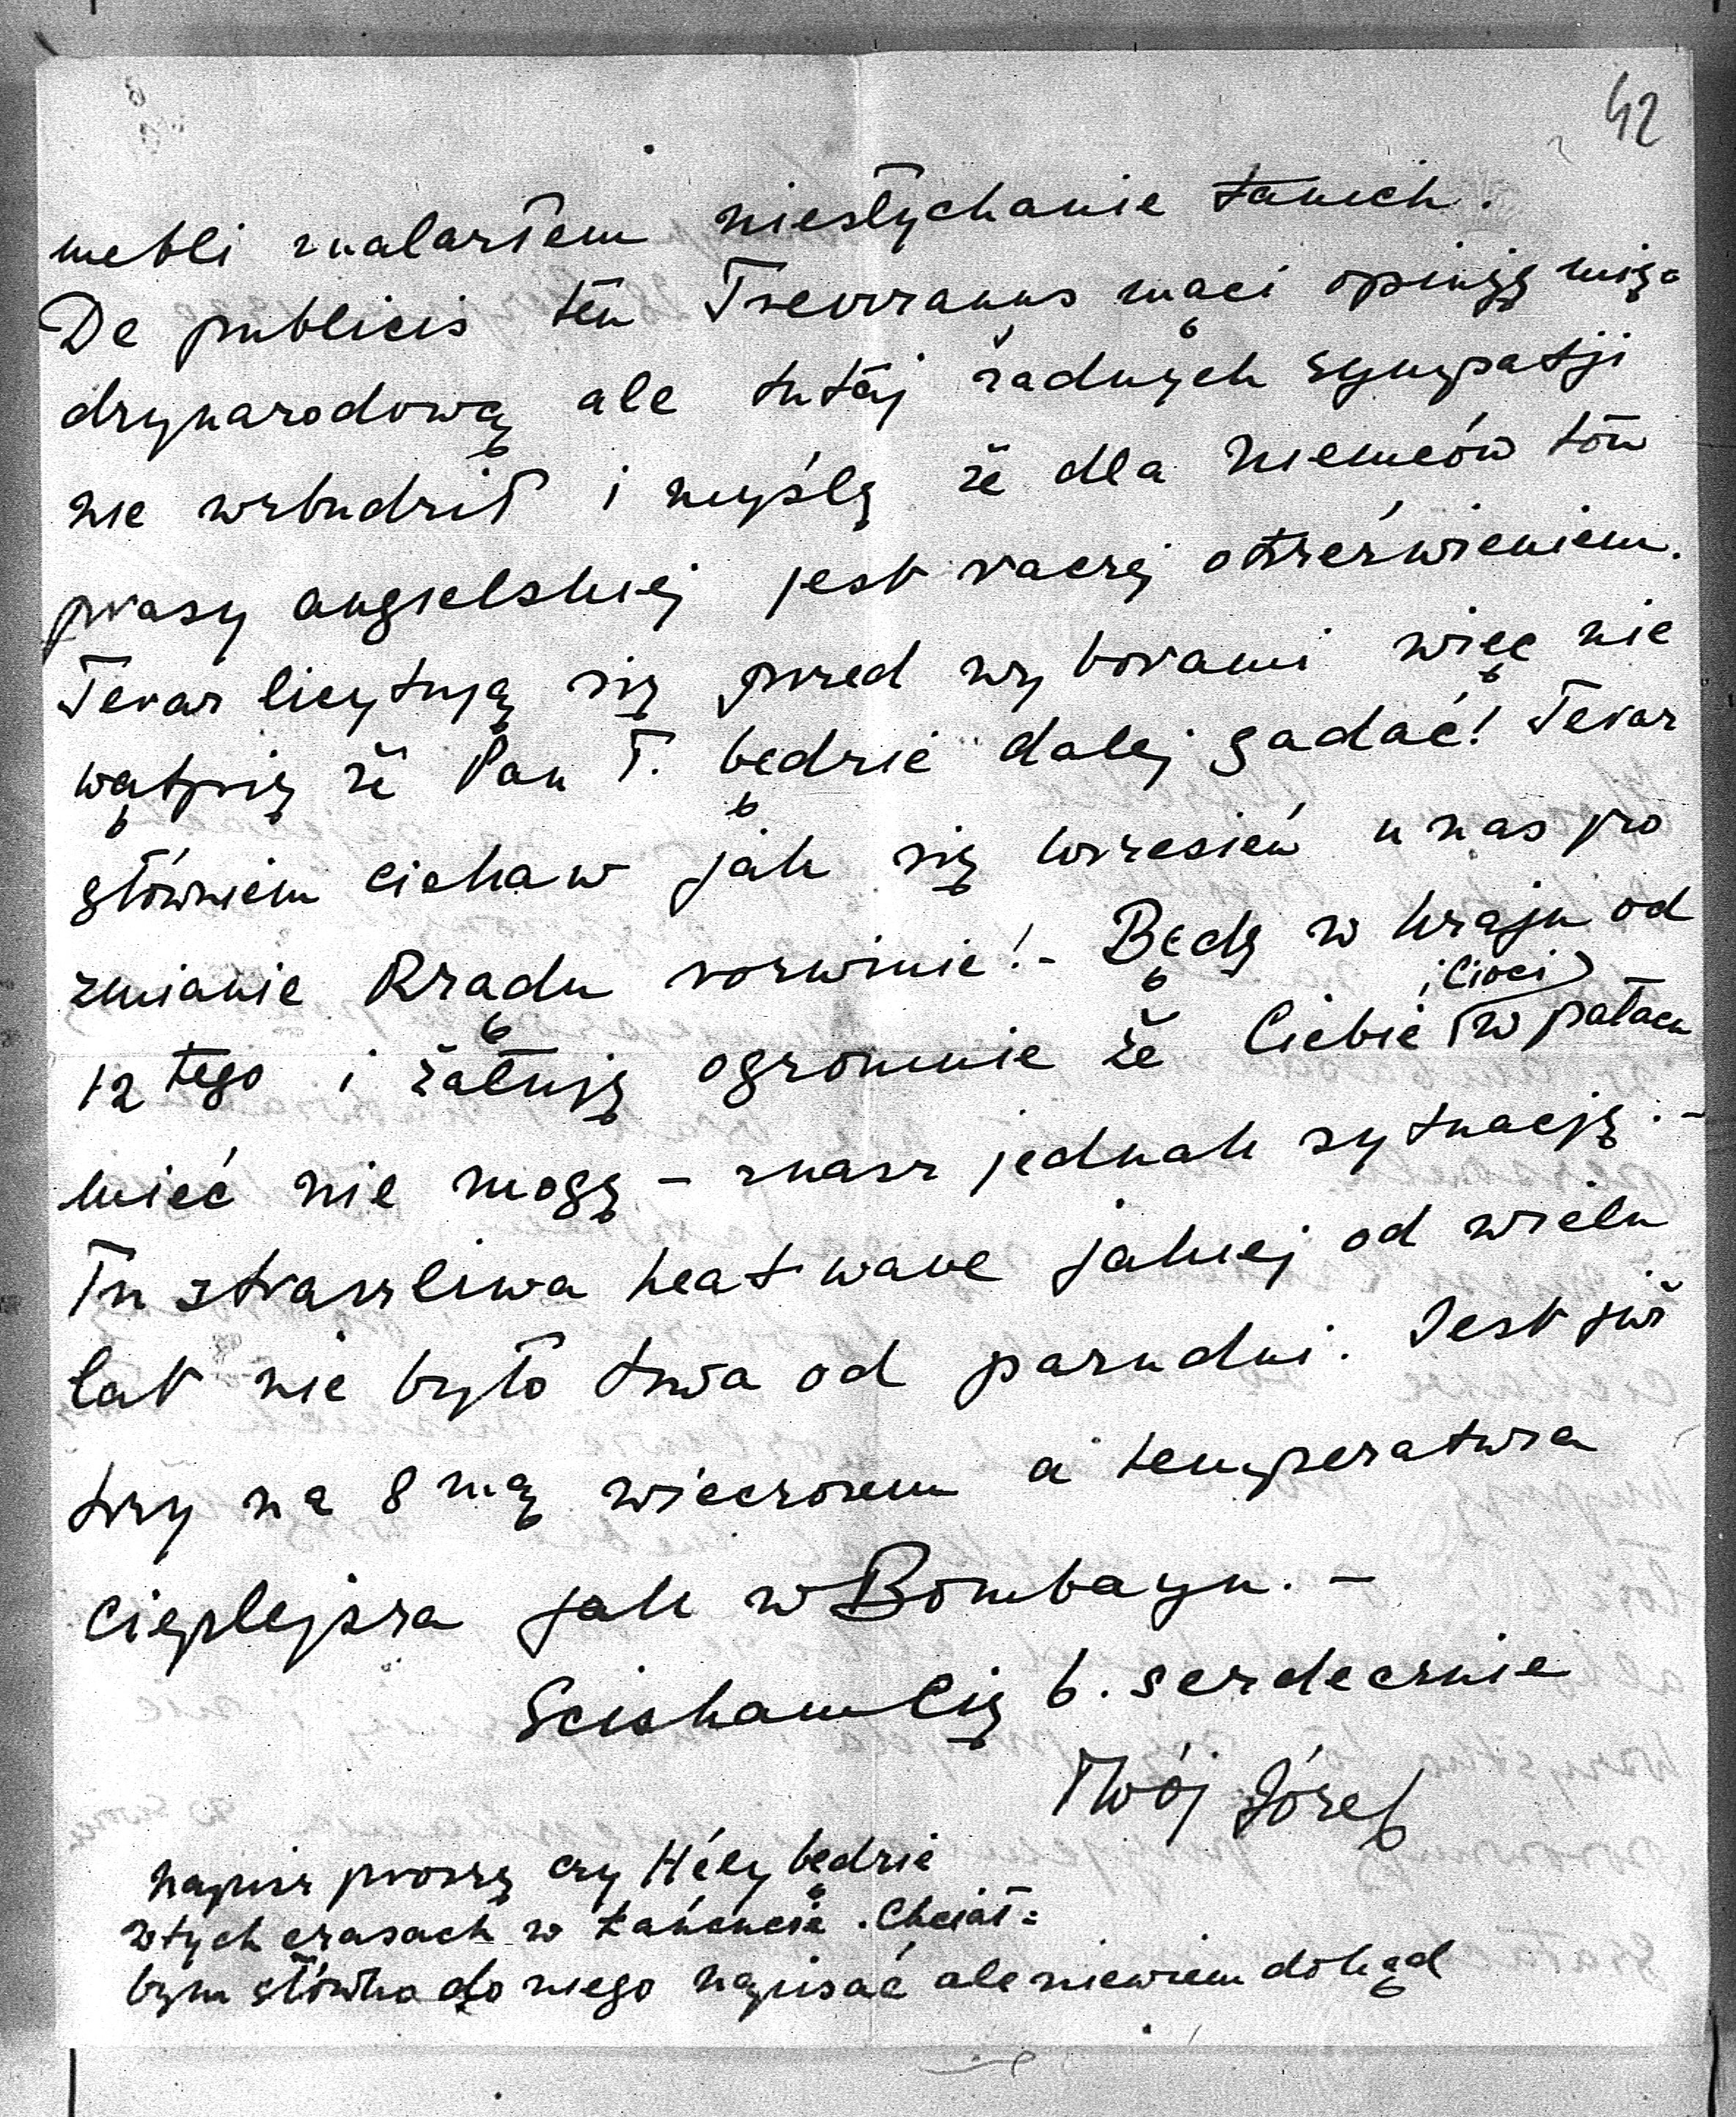 42
mebli znalazłem niesłychanie tanich.
De publicis ten Treviranus mąci opinję mię=
dzynarodową ale tutaj żadnych sympatji
nie wzbudził i myślę że dla Niemców ton
prasy angielskiej jest raczej otrzeźwieniem.
Teraz licytują się przed wyborami więc nie
wątpię że Pan T. będzie dalej gadać! Teraz
główniem ciekaw jak się wrzesień u nas po
zmianie Rządu rozwinie! - Będę w kraju od
12 tego i żałuję ogromnie że Ciebie (i Cioci) w pałacu
mieć nie mogę - znasz jednak sytuację. -
Tu straszliwa heat wave jakiej od wielu
lat nie było trwa od paru dni. Jest już
trzy na 8mą wieczorem a temperatura
cieplejsza jak w Bombayu. -
Sciskam Cię b. serdecznie
Twój Józef
Napisz proszę czy Hély będzie
w tych czasach w Łańcucie. Chciał=
bym słówko do niego napisać ale niewiem dokąd